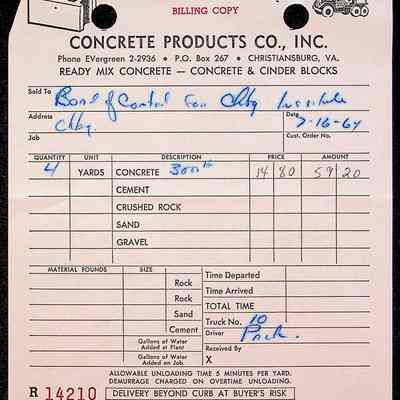 BILLING COPY
CONCRETE PRODUCTS CO., INC.
Phone EVergreen 2-2936 • P.O. Box 267 • CHRISTIANSBURG, VA.
READY MIX CONCRETE — CONCRETE & CINDER BLOCKS
Sold To Bord of Control for Chbg Institute
Address Chbg. Date 7-16-64
Job Cust. Order No.
QUANTITY UNIT DESCRIPTION PRICE AMOUNT
4 YARDS CONCRETE 3000 14 80 59 20
CEMENT
CRUSHED ROCK
SAND
GRAVEL
MATERIAL POUNDS SIZE Time Departed
Rock
Time Arrived
Rock
TOTAL TIME
Sand
Truck No. 10
Cement
Driver
Gallons of Water Added at Plant
Received By
Gallons of Water Added on Job X
ALLOWABLE UNLOADING TIME 5 MINUTES PER YARD.
DEMURRAGE CHARGED ON OVERTIME UNLOADING.
R 14210 DELIVERY BEYOND CURB AT BUYER'S RISK